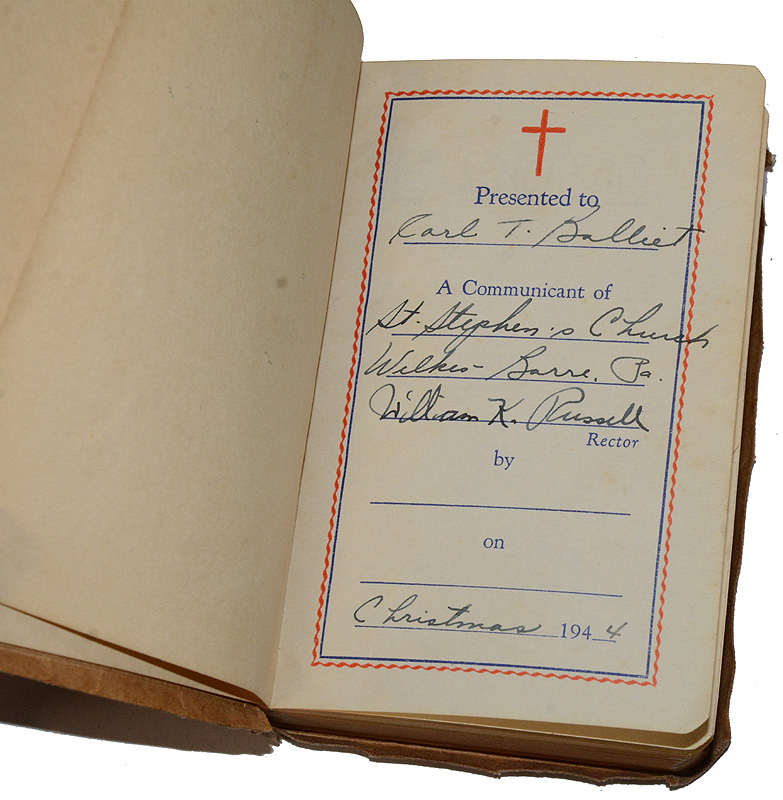 Presented to
Carl T. Balliet
A Communicant of
St. Stephen's Church
Wilkes-Barre, Pa.
William K. Russell
Rector
by
on
Christmas 1944